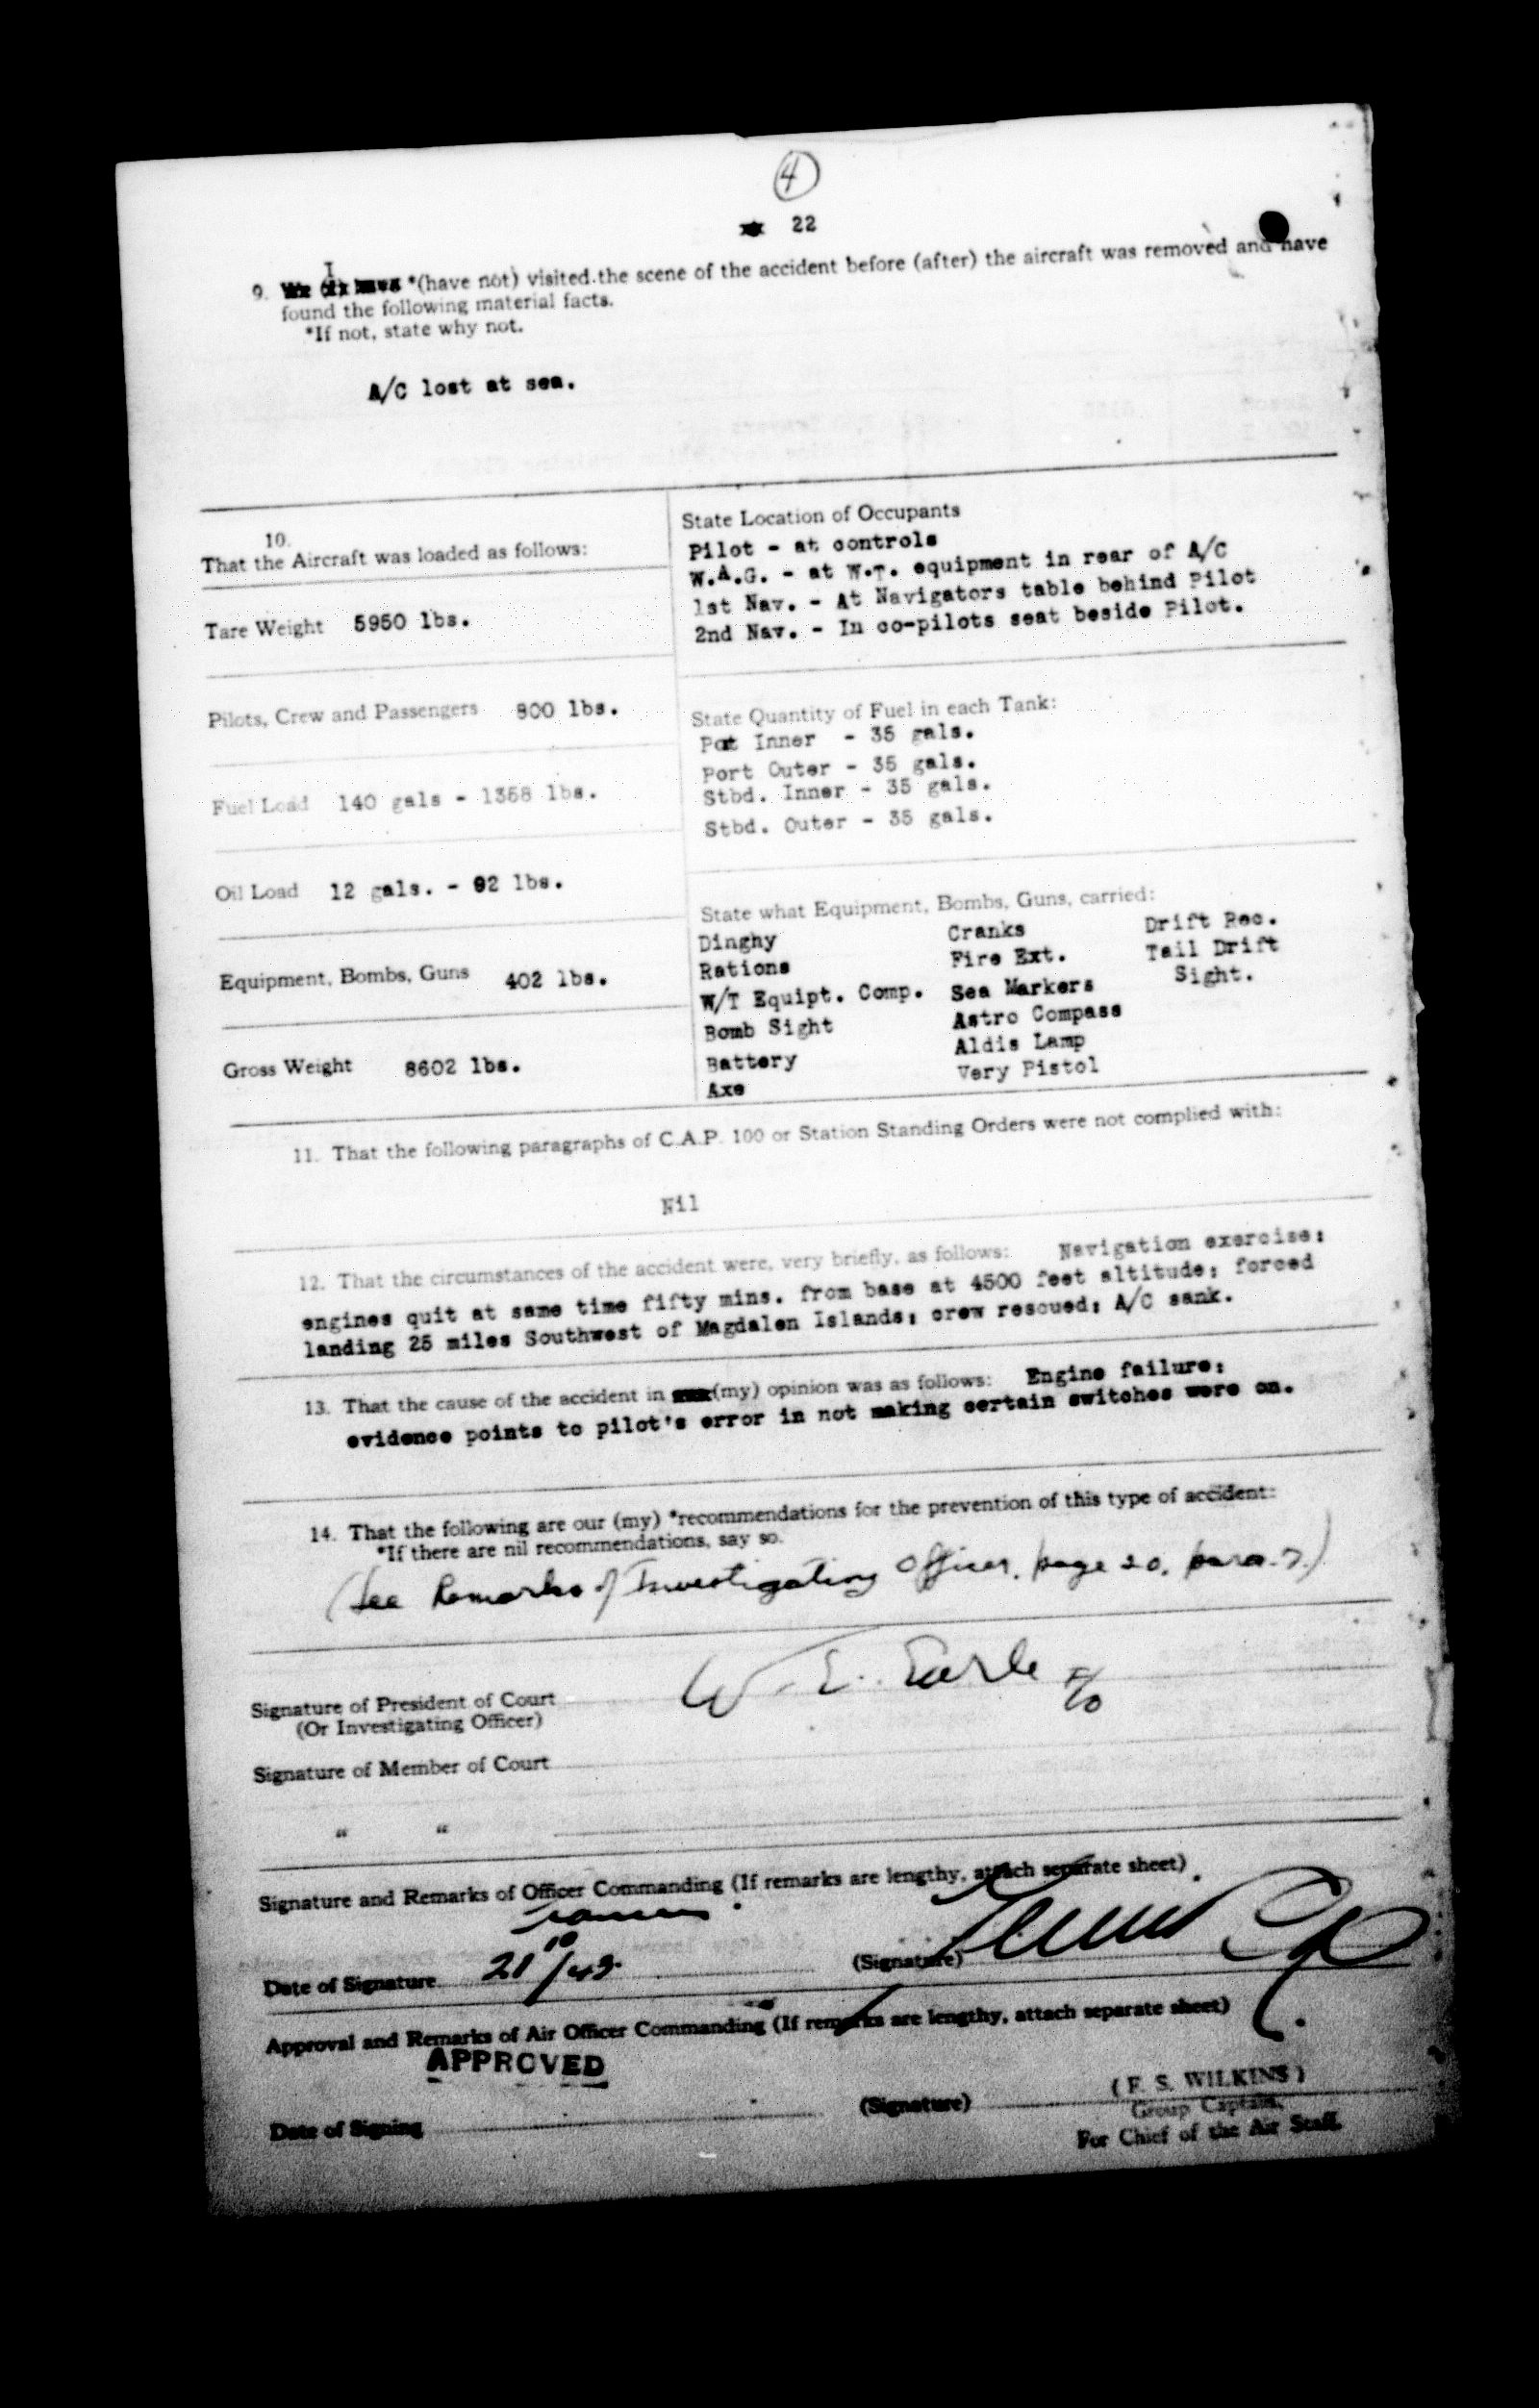 4
22
I
9. *(have not) visited the scene of the accident before (after) the aircraft was removed and have
found the following material facts.
*If not, state why not.
A/C lost at sea.
10.
That the Aircraft was loaded as follows:
Tare Weight 5950 lbs.
Pilots, Crew and Passengers 800 lbs.
Fuel Load 140 gals - 1358 lbs.
Oil Load 12 gals. - 92 lbs.
Equipment, Bombs, Guns 402 lbs.
Gross Weight 8602 lbs.
State Location of Occupants
Pilot - at controls
W.A.G. - at W.T. equipment in rear of A/C
1st Nav. - At Navigators table behind Pilot
2nd Nav. - In co-pilots seat beside Pilot.
State Quantity of Fuel in each Tank:
Pot Inner - 35 gals.
Port Outer - 35 gals.
Stbd. Inner - 35 gals.
Stbd. Outer - 35 gals.
State what Equipment, Bombs, Guns, carried:
Dinghy Cranks Drift Rec.
Rations Fire Ext. Tail Drift
W/T Equipt. Comp. Sea Markers Sight.
Bomb Sight Astro Compass
Battery Aldis Lamp
Axe Very Pistol
11. That the following paragraphs of C.A.P. 100 or Station Standing Orders were not complied with:
Nil
12. That the circumstances of the accident were, very briefly, as follows: Navigation exercise;
engines quit at same time fifty mins. from base at 4500 feet altitude; forced
landing 25 miles Southwest of Magdalen Islands; crew rescued; A/C sank.
13. That the cause of the accident in (my) opinion was as follows: Engine failure;
evidence points to pilot's error in not making certain switches were on.
14. That the following are our (my) *recommendations for the prevention of this type of accident:
*If there are nil recommendations, say so.
(See Remarks of Investigating Officer, page 20, para. 7.)
W. E. Earle F/O
Signature of President of Court
(Or Investigating Officer)
Signature of Member of Court
" "
Signature and Remarks of Officer Commanding (If remarks are lengthy, attach separate sheet)
Date of Signature 21/10/43 (Signature)
Approval and Remarks of Air Officer Commanding (If remarks are lengthy, attach separate sheet)
APPROVED
(F. S. WILKINS)
Date of Signing (Signature)
Group Captain,
For Chief of the Air Staff.